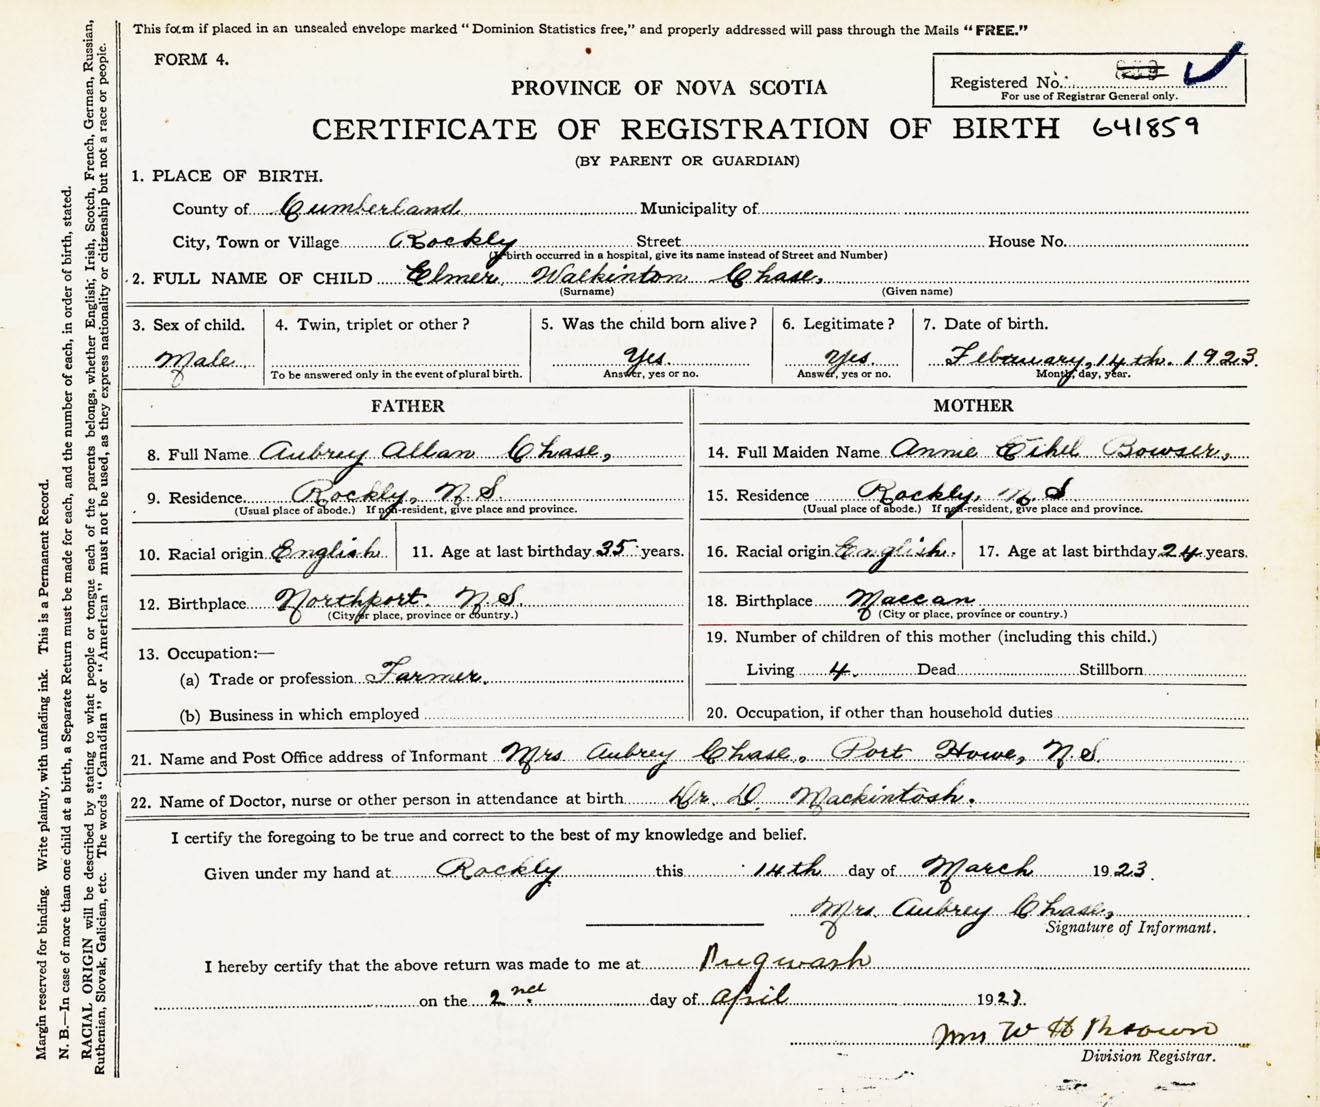 This form if placed in an unsealed envelope marked “Dominion Statistics free,” and properly addressed will pass through the Mails “FREE.”
FORM 4.
Registered No.
For use of Registrar General only.
PROVINCE OF NOVA SCOTIA
CERTIFICATE OF REGISTRATION OF BIRTH 641859
(BY PARENT OR GUARDIAN)
1. PLACE OF BIRTH.
County of Cumberland Municipality of
City, Town or Village Rockly Street House No.
(If birth occurred in a hospital, give its name instead of Street and Number)
2. FULL NAME OF CHILD Elmer Walkinton Chase,
(Surname) (Given name)
3. Sex of child. 4. Twin, triplet or other? 5. Was the child born alive? 6. Legitimate? 7. Date of birth.
Male Yes. Yes. February, 14th. 1923.
To be answered only in the event of plural birth. Answer, yes or no. Answer, yes or no. Month, day, year.
FATHER
8. Full Name Aubrey Allan Chase,
9. Residence Rockly, N.S.
(Usual place of abode.) If non-resident, give place and province.
10. Racial origin English 11. Age at last birthday 35 years.
12. Birthplace Northport. N.S.
(City or place, province or country.)
13. Occupation:—
(a) Trade or profession Farmer.
(b) Business in which employed
MOTHER
14. Full Maiden Name Annie Ethel Bowser,
15. Residence Rockly, N.S
(Usual place of abode.) If non-resident, give place and province.
16. Racial origin English. 17. Age at last birthday 24 years.
18. Birthplace Maccan
(City or place, province or country.)
19. Number of children of this mother (including this child.)
Living 4. Dead Stillborn
20. Occupation, if other than household duties
21. Name and Post Office address of Informant Mrs Aubrey Chase, Port Howe, N.S.
22. Name of Doctor, nurse or other person in attendance at birth Dr. D. Mackintosh.
I certify the foregoing to be true and correct to the best of my knowledge and belief.
Given under my hand at Rockly this 14th day of March 1923.
Mrs. Aubrey Chase,
Signature of Informant.
I hereby certify that the above return was made to me at Pugwash
on the 2nd day of April 1923.
Mrs W H Brown
Division Registrar.
Margin reserved for binding. Write plainly, with unfading ink. This is a Permanent Record.
N. B.—In case of more than one child at a birth, a Separate Return must be made for each, and the number of each, in order of birth, stated.
RACIAL ORIGIN will be described by stating to what people or tongue each of the parents belongs, whether English, Irish, Scotch, French, German, Russian,
Ruthenian, Slovak, Galician, etc. The words “Canadian” or “American” must not be used, as they express nationality or citizenship but not a race or people.